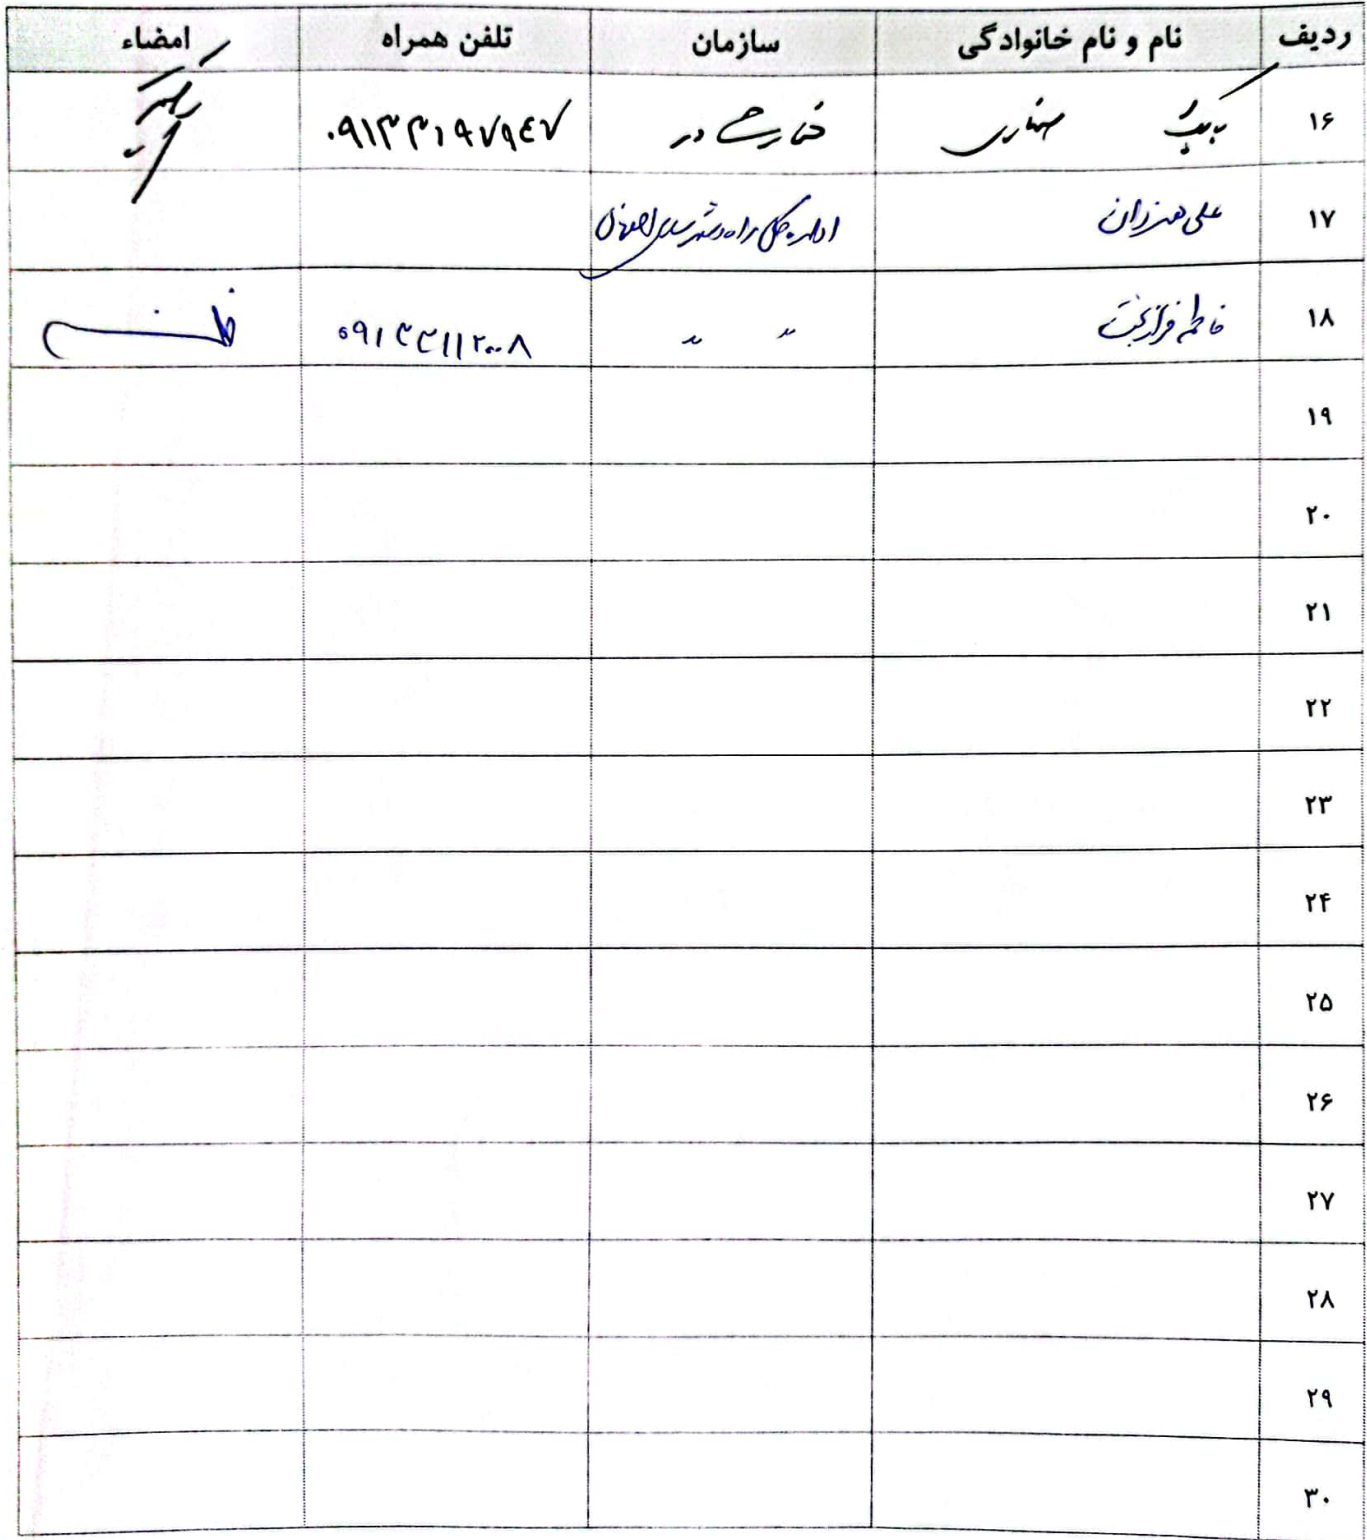 ردیف نام و نام خانوادگی سازمان تلفن همراه امضاء
۱۶ بابک ۰۹۱۳۳۱۹۷۹۴۷
۱۷ علی هنرزان اداره کل راه و شهرسازی اصفهان
۱۸ فاطمه فرازبخت " " ۰۹۱۳۳۱۱۲۰۰۸
۱۹
۲۰
۲۱
۲۲
۲۳
۲۴
۲۵
۲۶
۲۷
۲۸
۲۹
۳۰